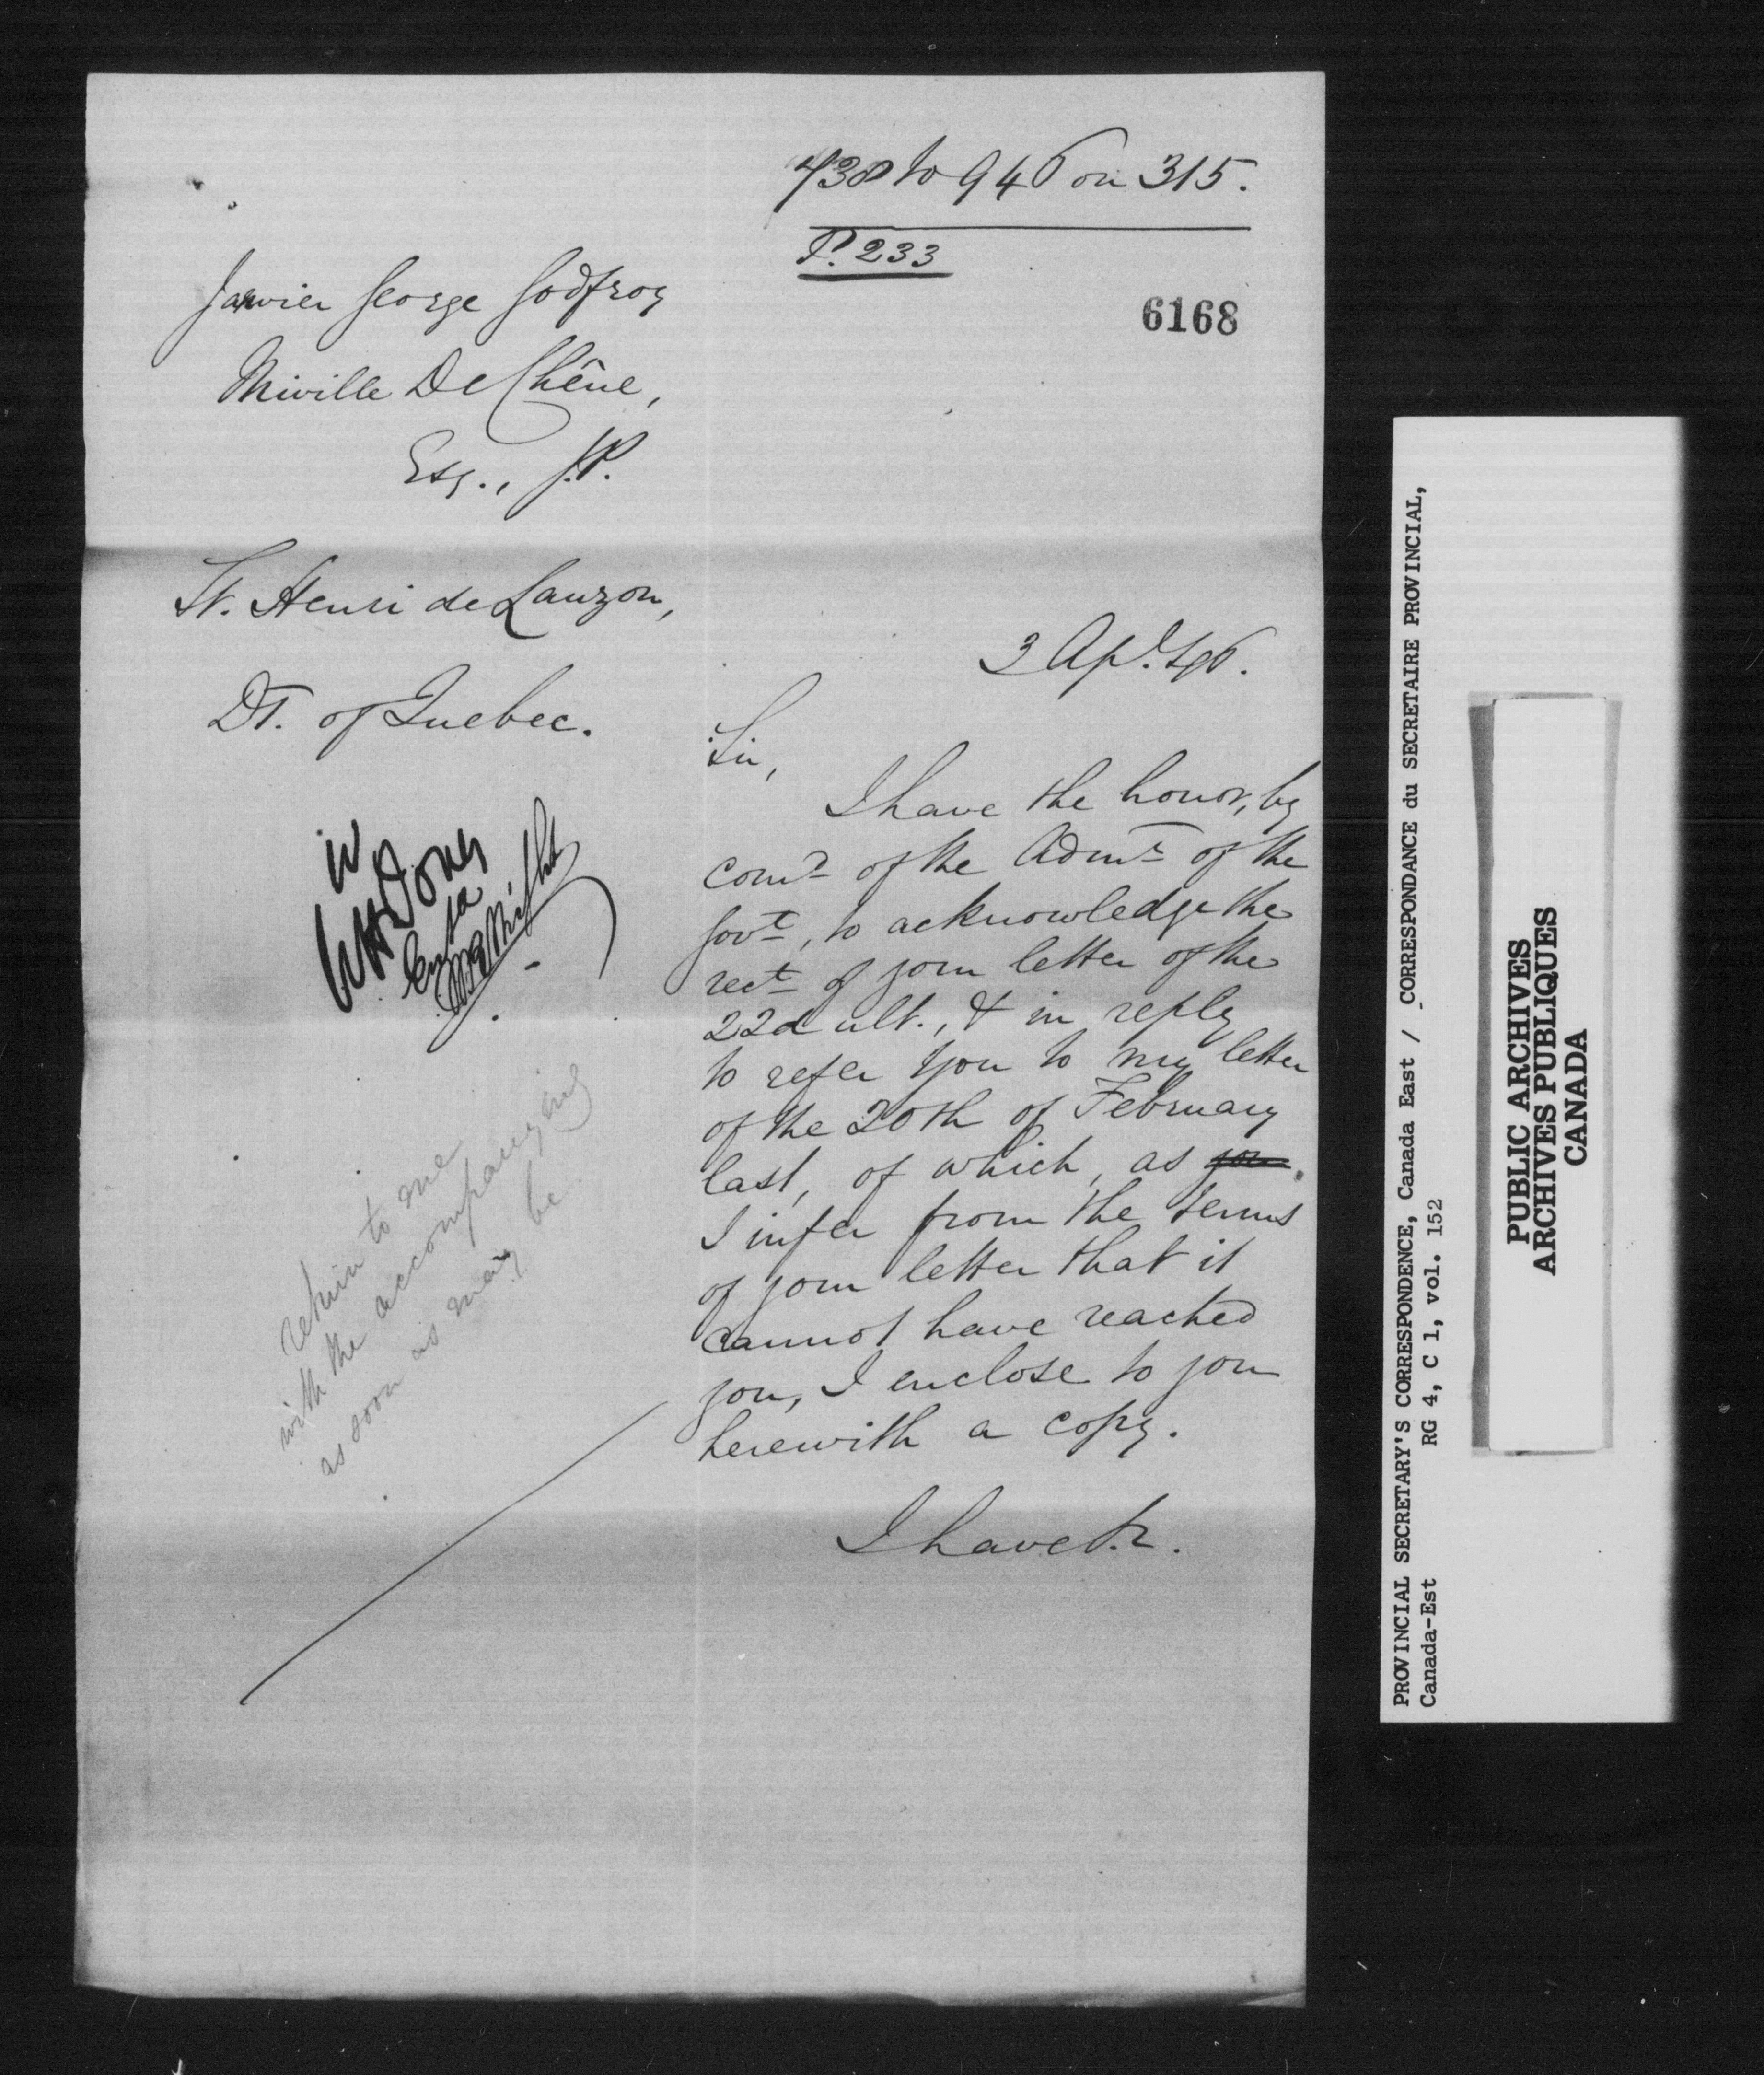 438 to 946 on 315.
P. 233
6168
Janvier George Godfroy
Miville De Chêne,
Esq., J.P.
St. Henri de Lauzon,
Dt. of Quebec.
3 Apl. 46.
Sir,
I have the honor, by
comd of the Admr of the
Govt, to acknowledge the
rect of your letter of the
22d ult., & in reply
to refer you to my letter
of the 20th of February
last, of which, as you
I infer from the terms
of your letter that it
cannot have reached
you, I enclose to you
herewith a copy.
I have &.
return to me
with the accompanying
as soon as may be
PROVINCIAL SECRETARY'S CORRESPONDENCE, Canada East / CORRESPONDANCE du SECRETAIRE PROVINCIAL,
Canada-Est RG 4, C 1, vol. 152
PUBLIC ARCHIVES
ARCHIVES PUBLIQUES
CANADA